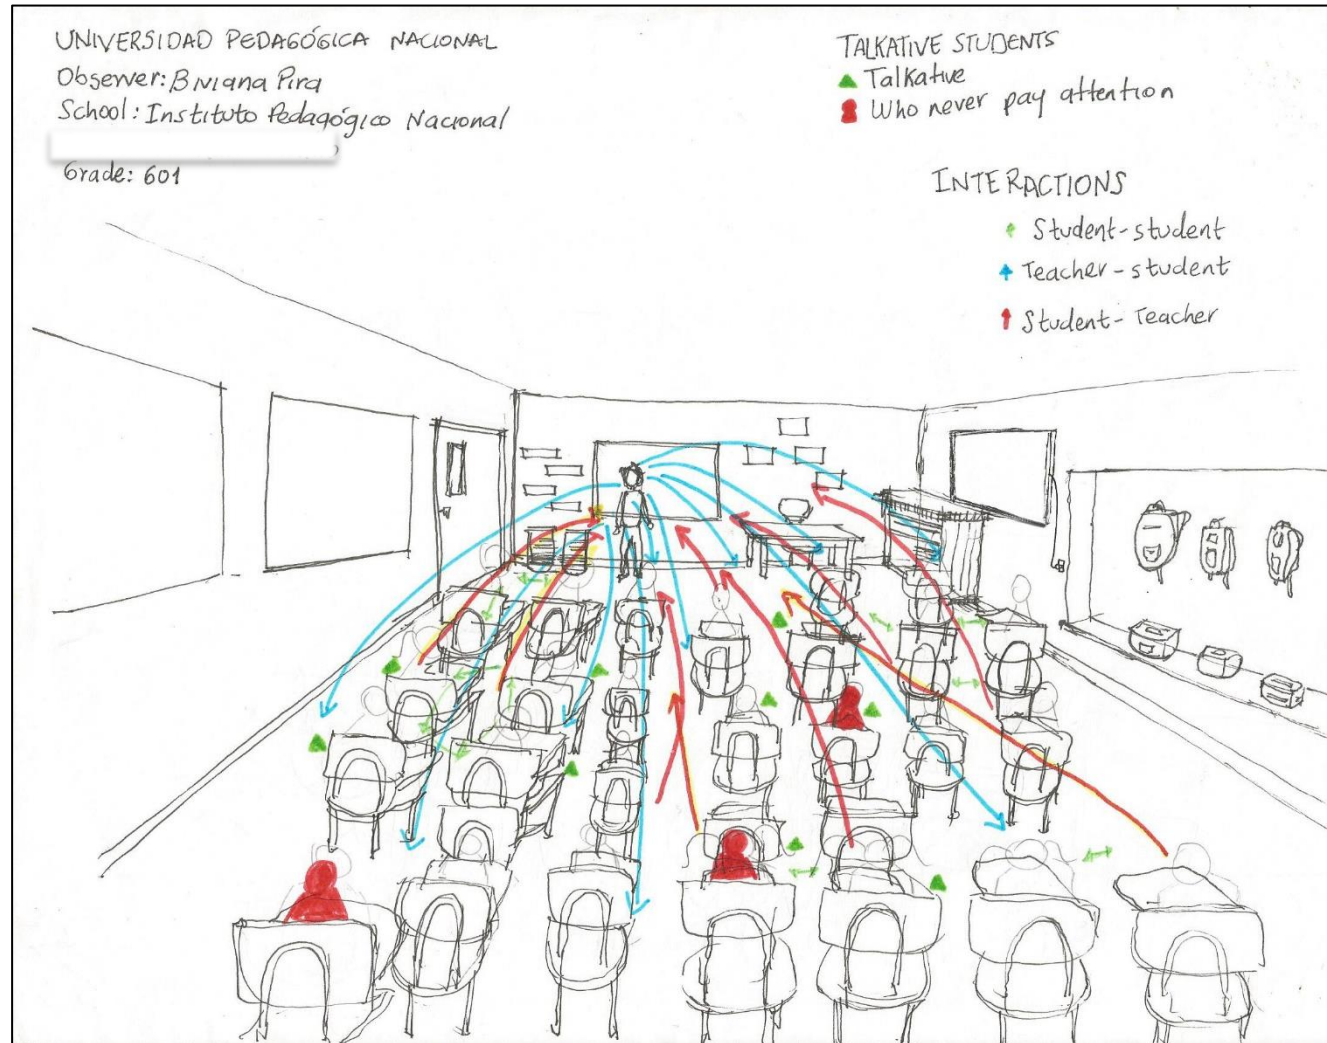 UNIVERSIDAD PEDAGÓGICA NACIONAL
Observer: Biviana Pira
School: Instituto Pedagógico Nacional
Grade: 601
TALKATIVE STUDENTS
Talkative
Who never pay attention
INTERACTIONS
Student-student
Teacher-student
Student-Teacher